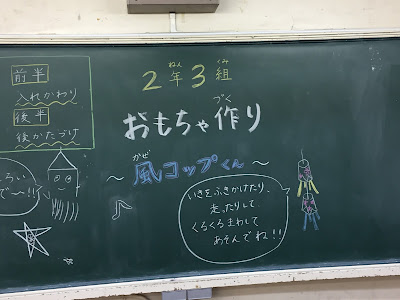 前半
入れかわり
後半
後かたづけ
2年3組
ねん
くみ
おもちゃ作り
づく
〜風コップくん〜
かぜ
いきをふきかけたり、
走ったりして
くるくるまわして
あそんでね!!
ろい
で〜!!